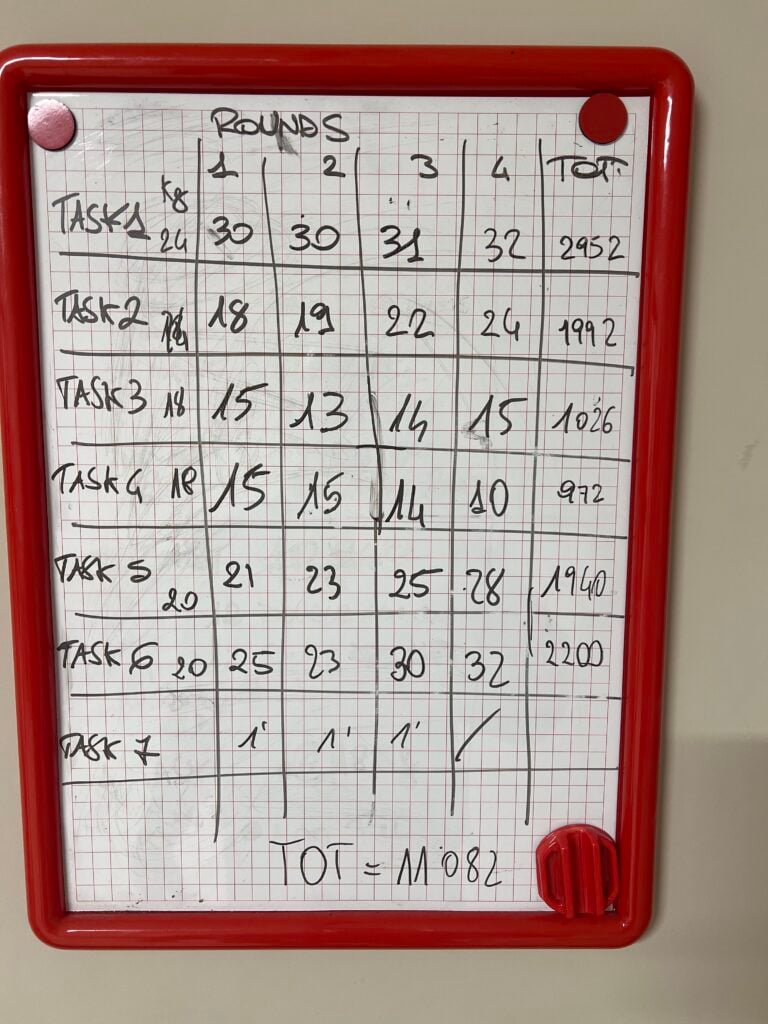 ROUNDS
Kg 1 2 3 4 TOT.
TASK1 24 30 30 31 32 2952
TASK2 18 19 22 24 1992
TASK3 18 15 13 14 15 1026
TASK4 18 15 15 14 10 972
TASK 5 20 21 23 25 28 1940
TASK 6 20 25 23 30 32 2200
TASK 7 1' 1' 1' /
TOT = 11'082